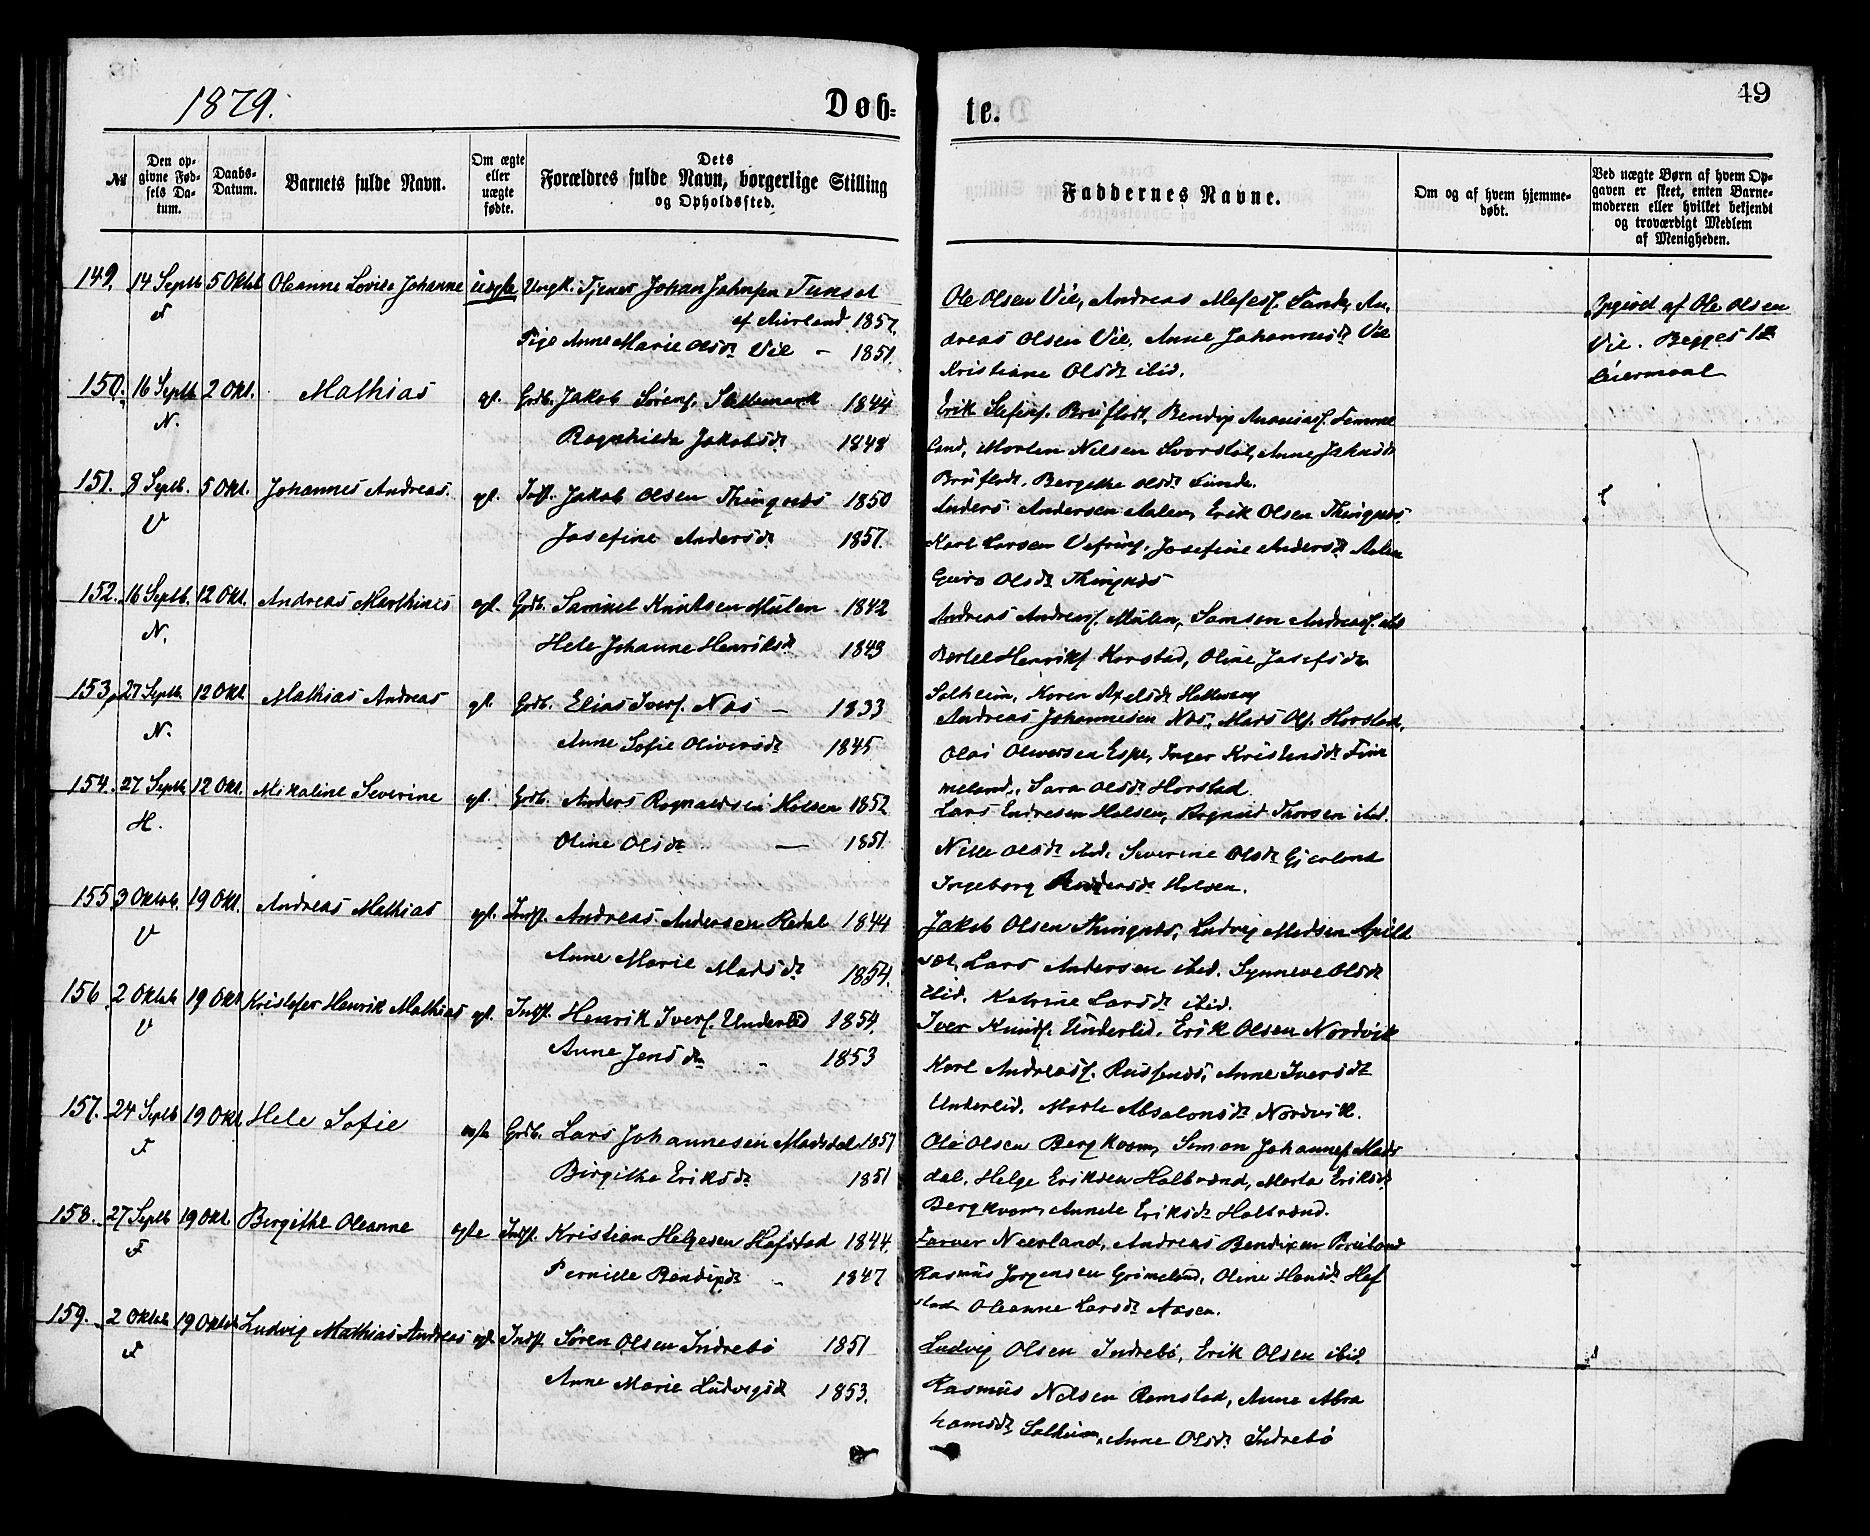 1879.
Døb=
te.
49
№
Den op-
givne Fød-
sels Da-
tum.
Daabs-
Datum.
Barnets fulde Navn.
Om ægte
eller
uægte
fødte.
Dets
Forældres fulde Navn, borgerlige Stilling
og Opholdssted.
Faddernes Navne.
Om og af hvem hjemme-
døbt.
Ved uægte Børn af hvem Op-
gaven er skeet, enten Barne-
moderen eller hvilket bekjendt
og troværdigt Medlem
af Menigheden.
149. 14 Septb 5 Oktb Oleanne Lovise Johanne uægte Ungk. Tjener Johan Johnsen Tunset
F
af Aurland 1857.
Pige Anne Marie Olsdr Vie — 1851.
Ole Olsen Vie, Andreas Sunde, An-
dreas Olsen Vie, Anne Johannesdr Vie
Kristiane Olsdr ibid.
Opgivet af Ole Olsen
Vie. Begges 1ste
Leiermaal
150. 16 Septb. 2 Okt. Mathias Grdb. Jakob Sørens. 1844
N.
Ragnhilda Jakobsdr 1848
Erik Bruflodt, Bendix Ananiass. Timme
land, Morten Nilsen Svorstøl, Anne
Bruflodt, Bergithe Olsdr Sunde.
151. 8 Septb. 5 Okt. Johannes Andreas. Indst. Jakob Olsen Thingnæs 1850
V
Josefine Andersdr 1857.
Anders Andersen Aalen, Erik Olsen Thingnæs
Karl Larsen Vefring, Josefine Andersdr Aalen
Guro Olsdr Thingnæs
152. 16 Septb. 12 Okt. Andreas Marthines Grdb. Samuel Knutsen Mulen 1842
N.
Hele Johanne Henriksdr 1843
Andreas Andreass. Mulen, Samson Andreass. ibd
Bertel Henriks. Horstad, Oline Josefsdr
Solheim, Karen Axelsdr
153. 27 Septb 12 Okt Mathias Andreas Grdb. Elias Ivers. Nas — 1833
N.
Anne Sofie Oliversdr 1845
Andreas Johannesen Nas, Mads Ols. Horstad,
Olai Oliversen Espe, Inger Kristensdr Tim
meland, Sara Olsdr Horstad
154. 27 Septb 12 Okt. Mikaline Severine Grdb. Anders Ragnaldsen Holsen 1852
H.
Oline Olsdr — 1851
Lars Endresen Holsen, Thorsen ibd.
Nille Olsdr ibd. Severine Olsdr Gjerland
Ingeborg Andersdr Holsen.
155. 3 Oktob. 19 Okt. Andreas Mathias Indst. Andreas Andersen Redal 1844
V
Anne Marie Madsdr 1854.
Jakob Olsen Thingnæs, Ludvig Madsen Apild
sæt, Lars Andersen ibd. Synneve Olsdr
ibid. Katrine Larsdr ibid.
156. 2 Oktob 19 Okt Kristofer Henrik Mathias Indst. Henrik Ivers. Underlid 1854.
V
Anne Jensdr - 1853
Iver Knuds. Underlid, Erik Olsen Nordvik
Karl Andreass. Anne Iversdr
Underlid, Marte Absalonsdr Nordvik.
157. 24 Septb 19 Okt Hele Sofie ægte Grdb. Lars Johannesen Mardal 1857
F
Birgithe Eriksdr 1851
Ole Olsen Bergkvam, Simon Johannes. Mar
dal, Helge Eriksen Halbrend, Marta Eriksdr
Bergkvam, Annete Eriksdr Halbrend.
158. 27 Septb 19 Okt. Birgithe Oleanne ægte Indst. Kristian Helgesen Hafstad 1844.
F
Pernille Bendixdr - 1847
Neerland, Andreas Bendixen Breiland
Rasmus Jørgensen Grimelund, Oline Hansdr Haf
stad Oleanne Larsdr Aasen.
159. 2 Oktob 19 Oktob Ludvig Mathias Andreas Indst. Søren Olsen Indrebø 1851
F
Anne Marie Ludvigsdr 1853.
Ludvig Olsen Indrebø, Erik Olsen ibid.
Rasmus Nilsen Ramstad, Anne Abra
hamsdr Solheim, Anne Olsdr Indrebø